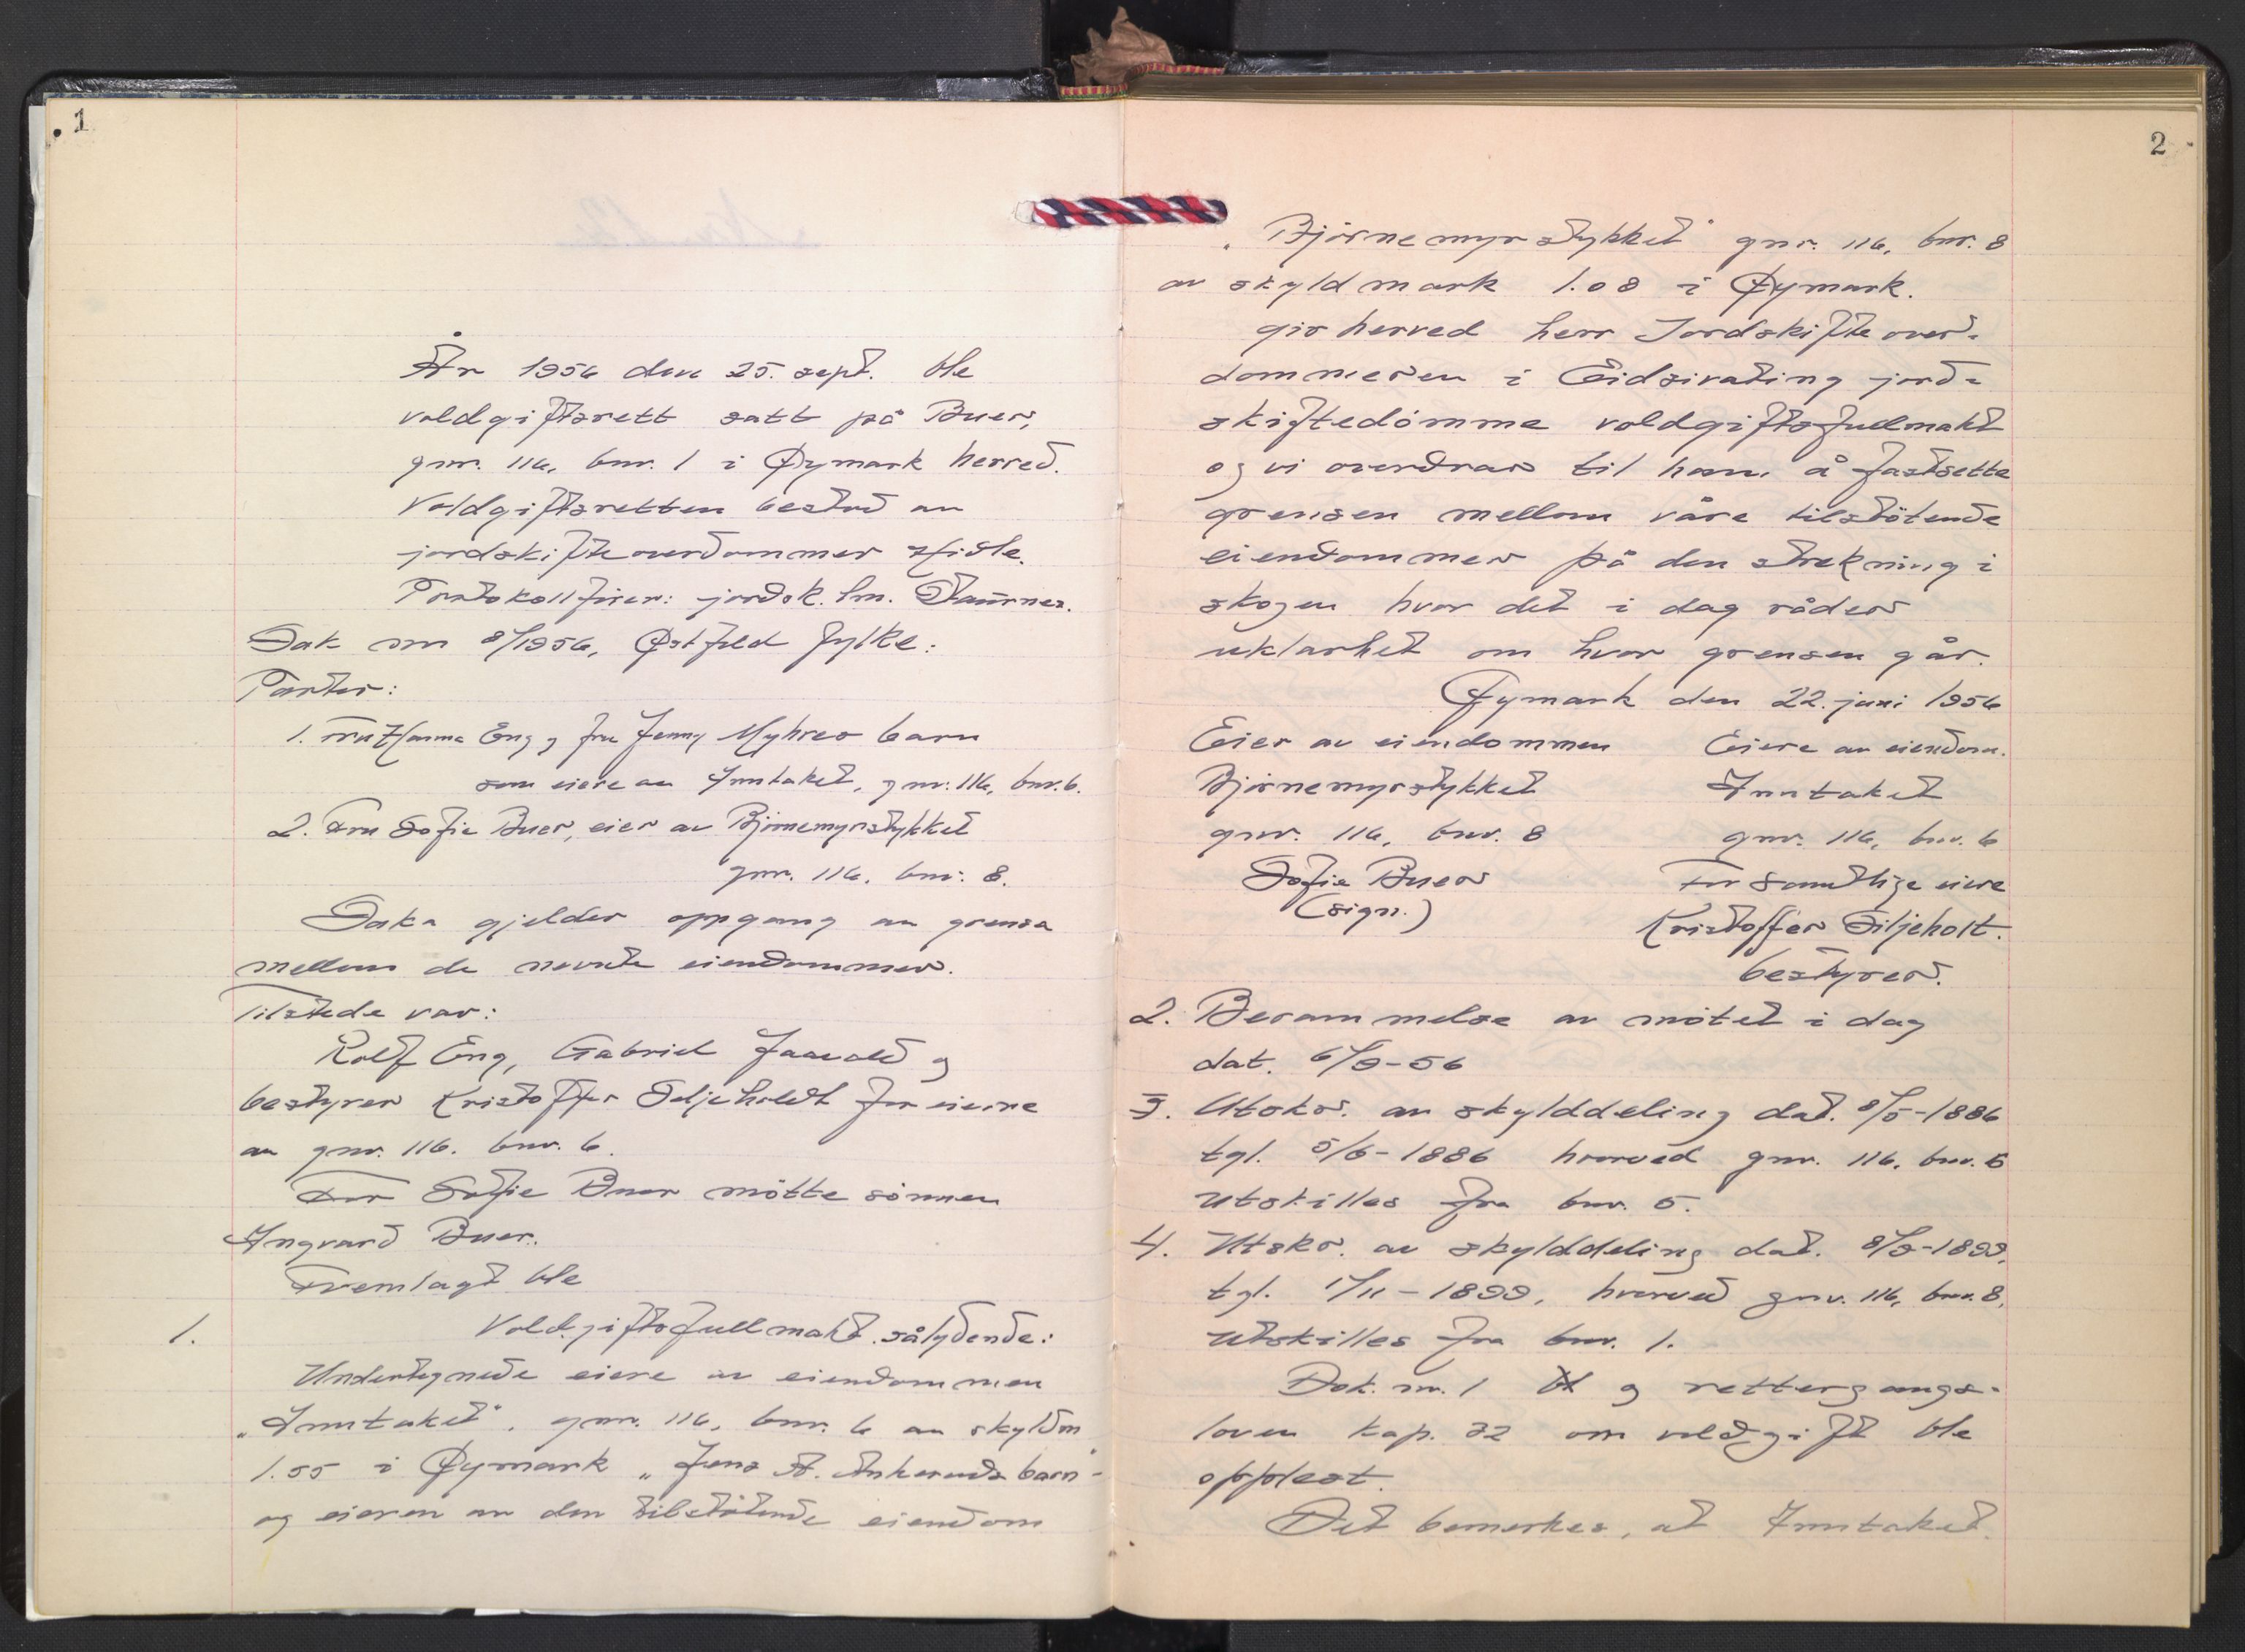 1
År 1956 den 25. sept. ble
voldgiftsrett satt på Buer,
gnr. 116, bnr. 1 i Øymark herred.
Voldgiftsretten bestod av
jordskifteoverdommer
Protokollfører: jordsk. km.
Sak nr 8/1956, Østfold fylke:
Parter:
1. Fru Hanna Eng og fru Jenny Myhres barn
som eiere av Inntaket, gnr. 116, bnr. 6.
2. Fru Sofie Buer, eier av Björnemyrstykket
gnr. 116, bnr. 8.
Saka gjelder oppgang av grensa
mellom de nevnte eiendommer.
Tilstede var:
Rolf Eng, Gabriel og
bestyrer Kristoffer Siljeholdt for eierne
av gnr. 116. bnr. 6.
For Sofie Buer mötte sönnen
Ingvard Buer.
Fremlagt ble
1. Voldgiftsfullmakt sålydende:
Undertegnede eiere av eiendommen
„Inntaket", gnr. 116, bnr. 6 av skyldm
1.55 i Øymark „Jens A. Ankeruds barn"
og eieren av den tilstötende eiendom
2
„Björnemyrstykket" gnr. 116, bnr. 8
av skyldmark 1.08 i Øymark.
gir herved herr Jordskifteover-
dommeren i Eidsivating jord-
skiftedömme voldgiftsfullmakt
og vi overdrar til ham å fastsette
grensen mellom våre tilstötende
eiendommer på den strekning i
skogen hvor det i dag råder
uklarhet om hvor grensen går.
Øymark den 22. juni 1956
Eier av eiendommen Eiere av eiendom.
Björnemyrstykket Inntaket
gnr. 116, bnr. 8 gnr. 116, bnr. 6
Sofie Buer For samtlige eiere
(sign.) Kristoffer Siljeholt.
bestyrer.
2. Berammelse av mötet i dag
dat. 6/9-56
3. Utskr. av skylddeling dat. 8/5-1886
tgl. 5/6-1886 hvorved gnr. 116, bnr. 6
utskilles fra bnr. 5.
4. Utskr. av skylddeling dat. 8/9-1899,
tgl. 1/11-1899, hvorved gnr. 116, bnr. 8,
utskilles fra bnr. 1.
Dok. nr. 1 og rettergangs-
loven kap. 32 om voldgift ble
opplest.
Det bemerkes, at Inntaket.